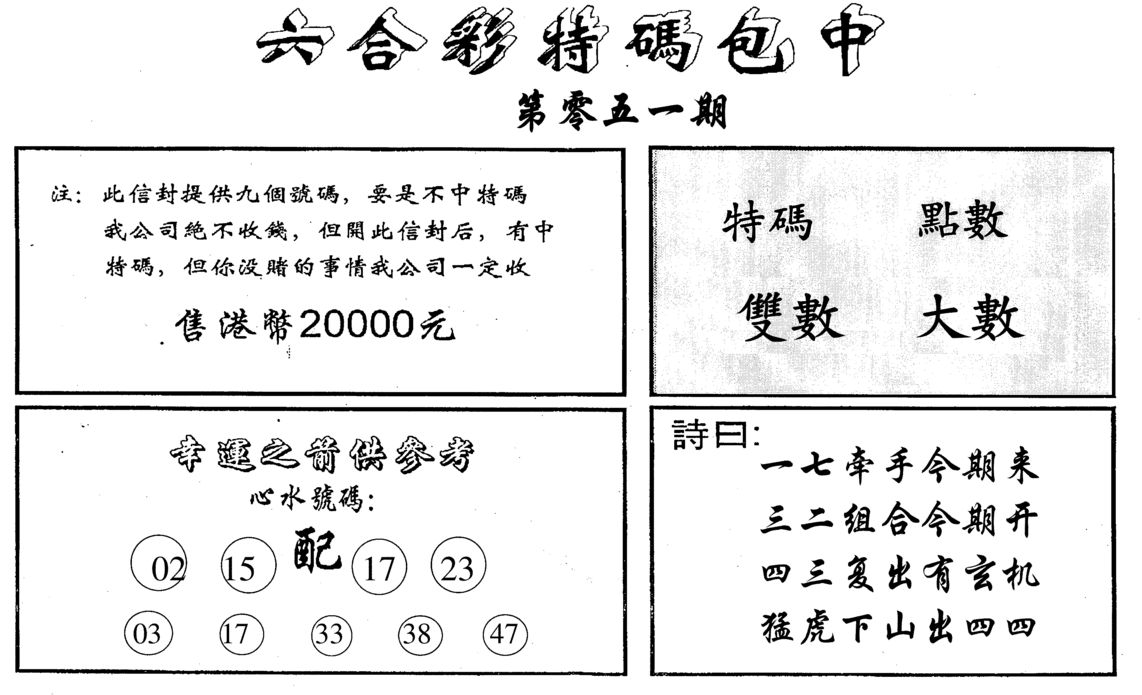 六合彩特碼包中
第零五一期
注：此信封提供九個號碼，要是不中特碼
我公司絕不收錢，但開此信封后，有中
特碼，但你没賭的事情我公司一定收
售港幣20000元
特碼 點數
雙數 大數
幸運之箭供參考
心水號碼：
02 15 配 17 23
03 17 33 38 47
詩曰：
一七牽手今期来
三二组合今期开
四三复出有玄机
猛虎下山出四四